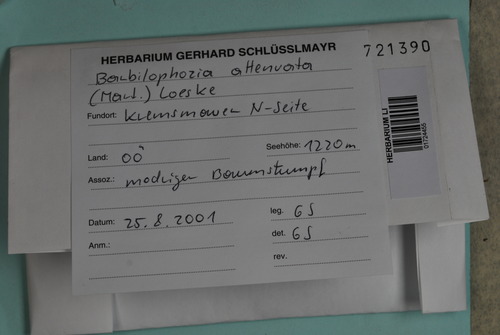 HERBARIUM GERHARD SCHLÜSSLMAYR
721390
Barbilophozia attenuata
(Mart.) Loeske
Fundort: Kremsmauer N-Seite
Land: OÖ Seehöhe: 1220m
Assoz.: modriger Baumstumpf
Datum: 25.8.2001 leg. GS
Anm.: det. GS
rev.
HERBARIUM LI
01724455